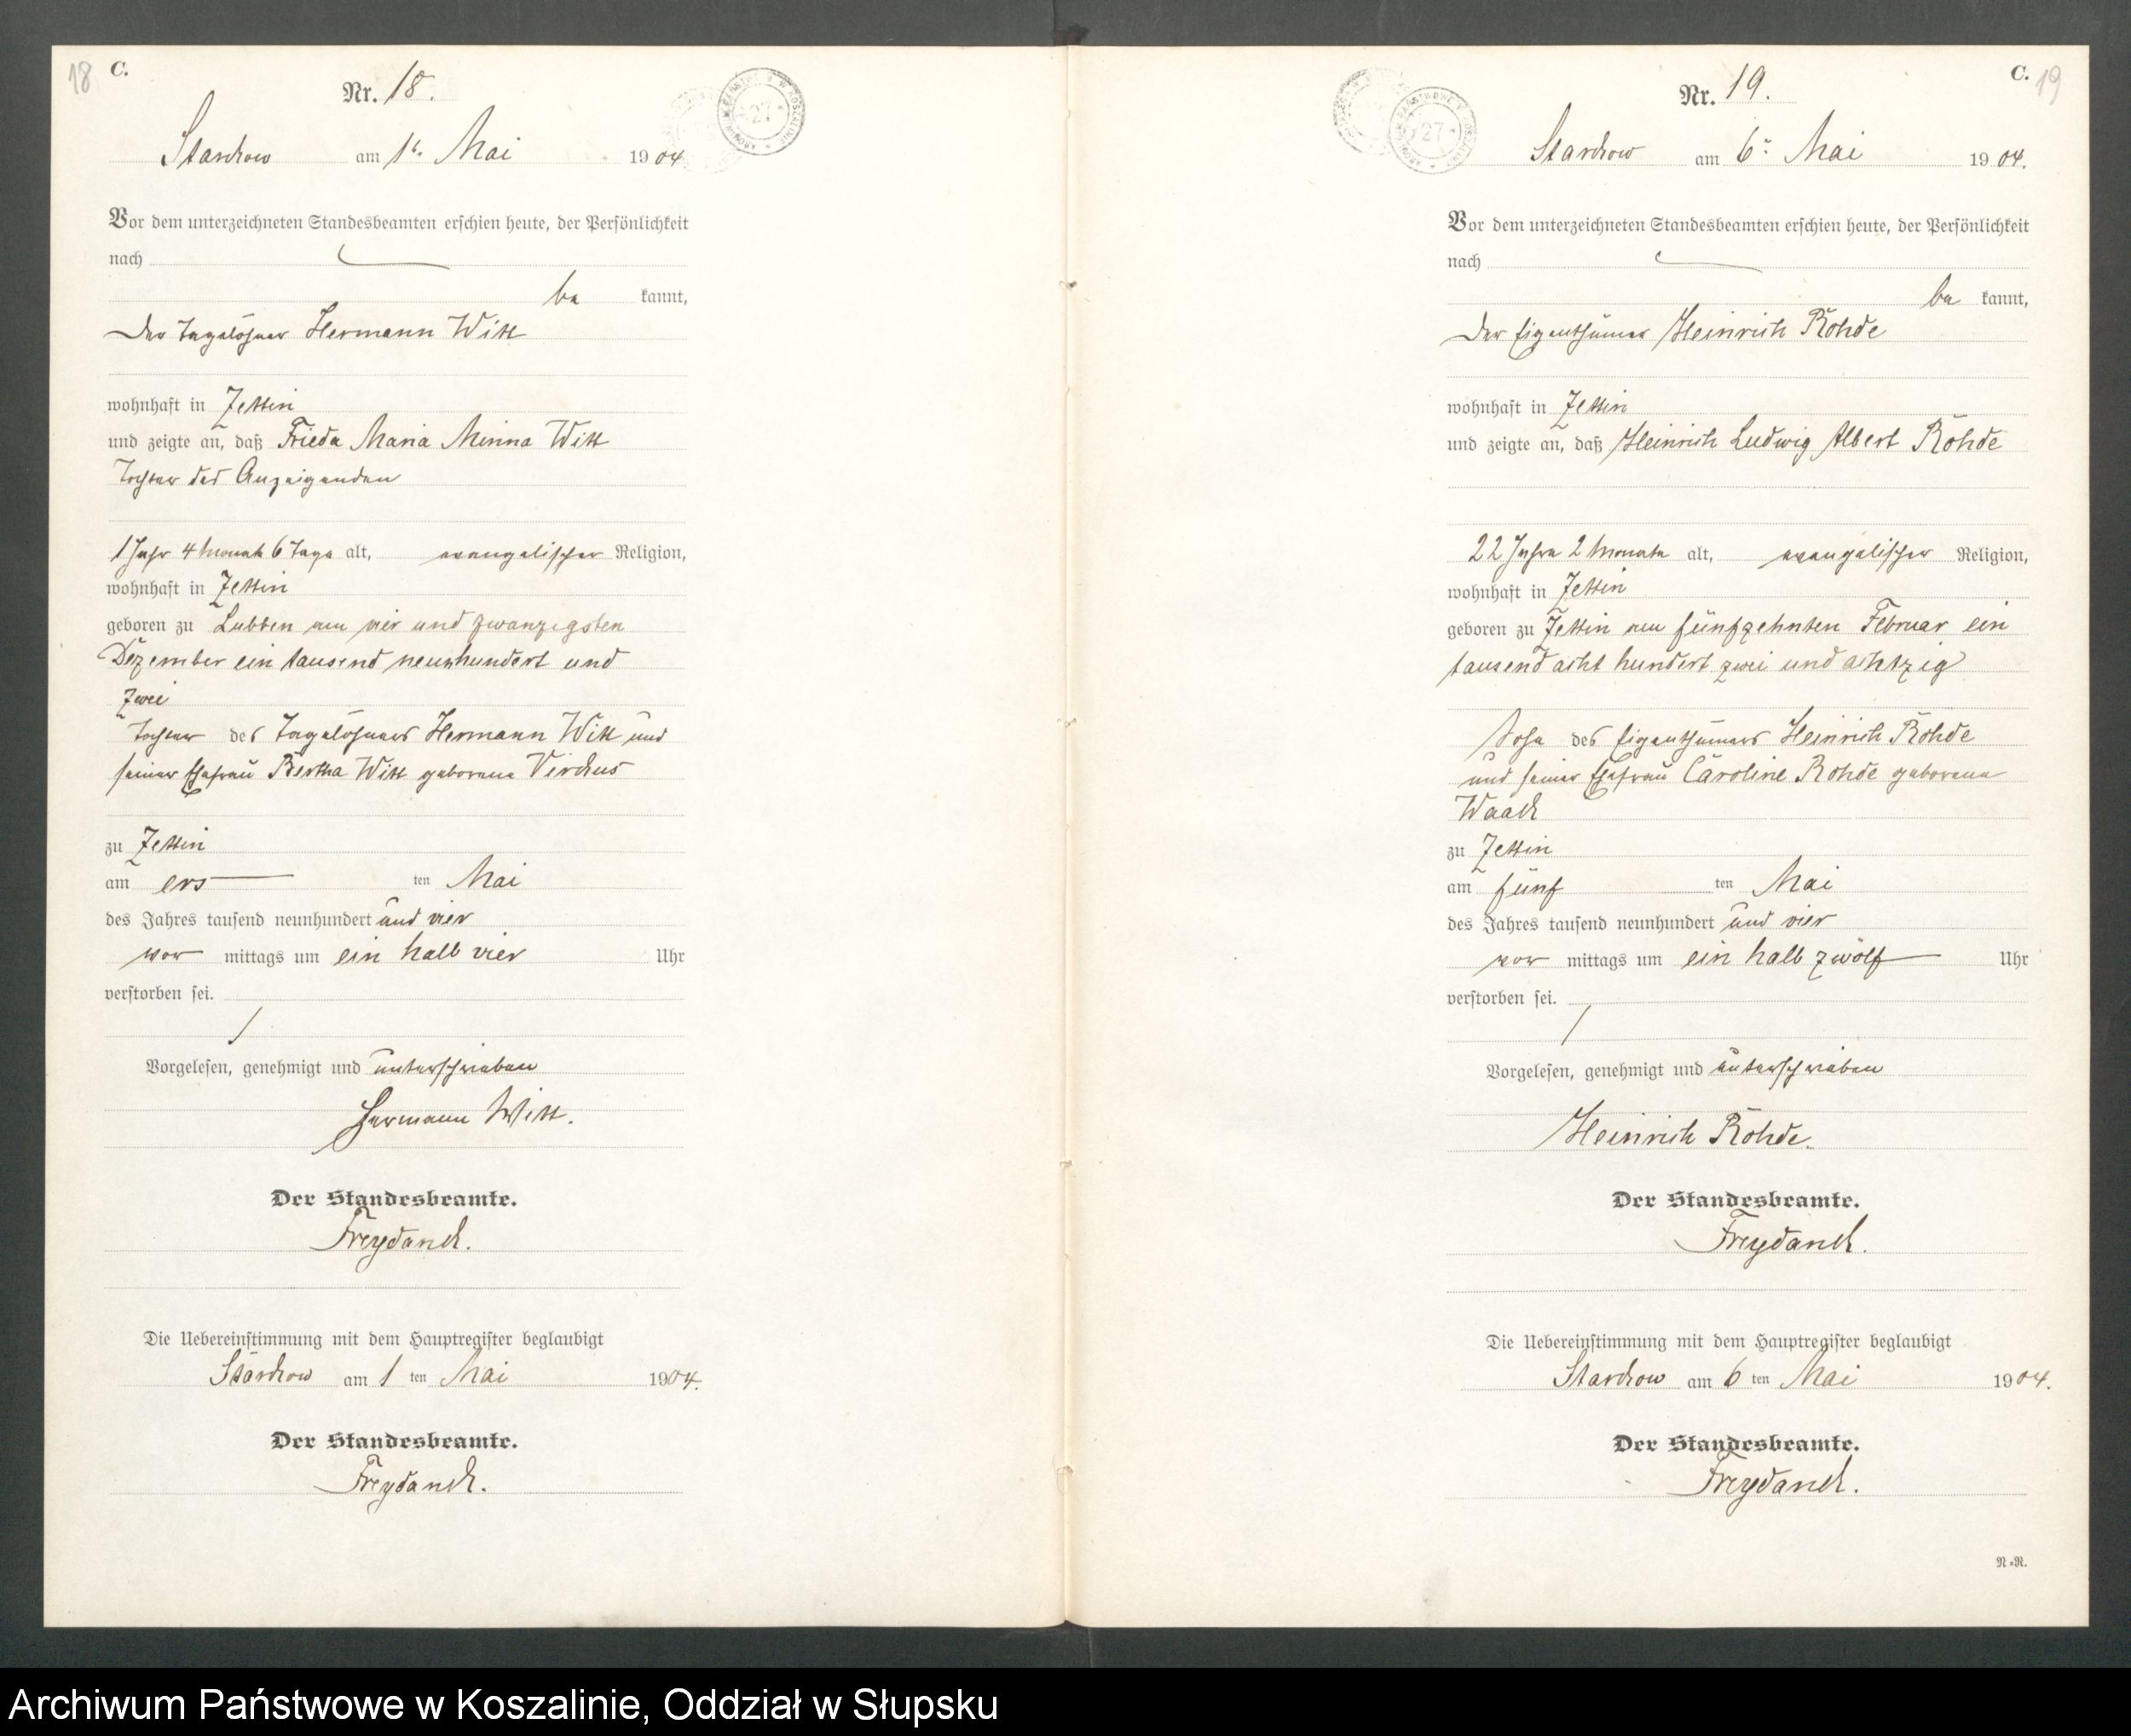 18
C.
Nr. 18.
Starckow am 1ten Mai 1904.
Vor dem unterzeichneten Standesbeamten erschien heute, der Persönlichkeit
nach
be kannt,
Der Tagelöhner Hermann Witt
wohnhaft in Zettin
und zeigte an, daß Frieda Maria Minna Witt
Tochter des Anzeigenden
1 Jahr 4 Monate 6 Tage alt, evangelischer Religion,
wohnhaft in Zettin
geboren zu Lubben am vier und zwanzigsten
Dezember ein tausend neunhundert und
zwei
Tochter des Tagelöhners Hermann Witt und
seiner Ehefrau Bertha Witt geborene Virchus
zu Zettin
am ers ten Mai
des Jahres tausend neunhundert und vier
vor mittags um ein halb vier Uhr
verstorben sei.
Vorgelesen, genehmigt und unterschrieben
Hermann Witt.
Der Standesbeamte.
Freydanck.
Die Uebereinstimmung mit dem Hauptregister beglaubigt
Starckow am 1 ten Mai 1904.
Der Standesbeamte.
Freydanck.
C.
19
Nr. 19.
Starckow am 6ten Mai 1904.
Vor dem unterzeichneten Standesbeamten erschien heute, der Persönlichkeit
nach
be kannt,
Der Eigenthümer Heinrich Rohde
wohnhaft in Zettin
und zeigte an, daß Heinrich Ludwig Albert Rohde
22 Jahre 2 Monate alt, evangelischer Religion,
wohnhaft in Zettin
geboren zu Zettin am fünfzehnten Februar ein
tausend acht hundert zwei und achtzig
Sohn des Eigenthümers Heinrich Rohde
und seiner Ehefrau Caroline Rohde geborene
Waack
zu Zettin
am fünf ten Mai
des Jahres tausend neunhundert und vier
vor mittags um ein halb zwölf Uhr
verstorben sei.
Vorgelesen, genehmigt und unterschrieben
Heinrich Rohde.
Der Standesbeamte.
Freydanck.
Die Uebereinstimmung mit dem Hauptregister beglaubigt
Starckow am 6 ten Mai 1904.
Der Standesbeamte.
Freydanck.
N.R.
Archiwum Państwowe w Koszalinie, Oddział w Słupsku